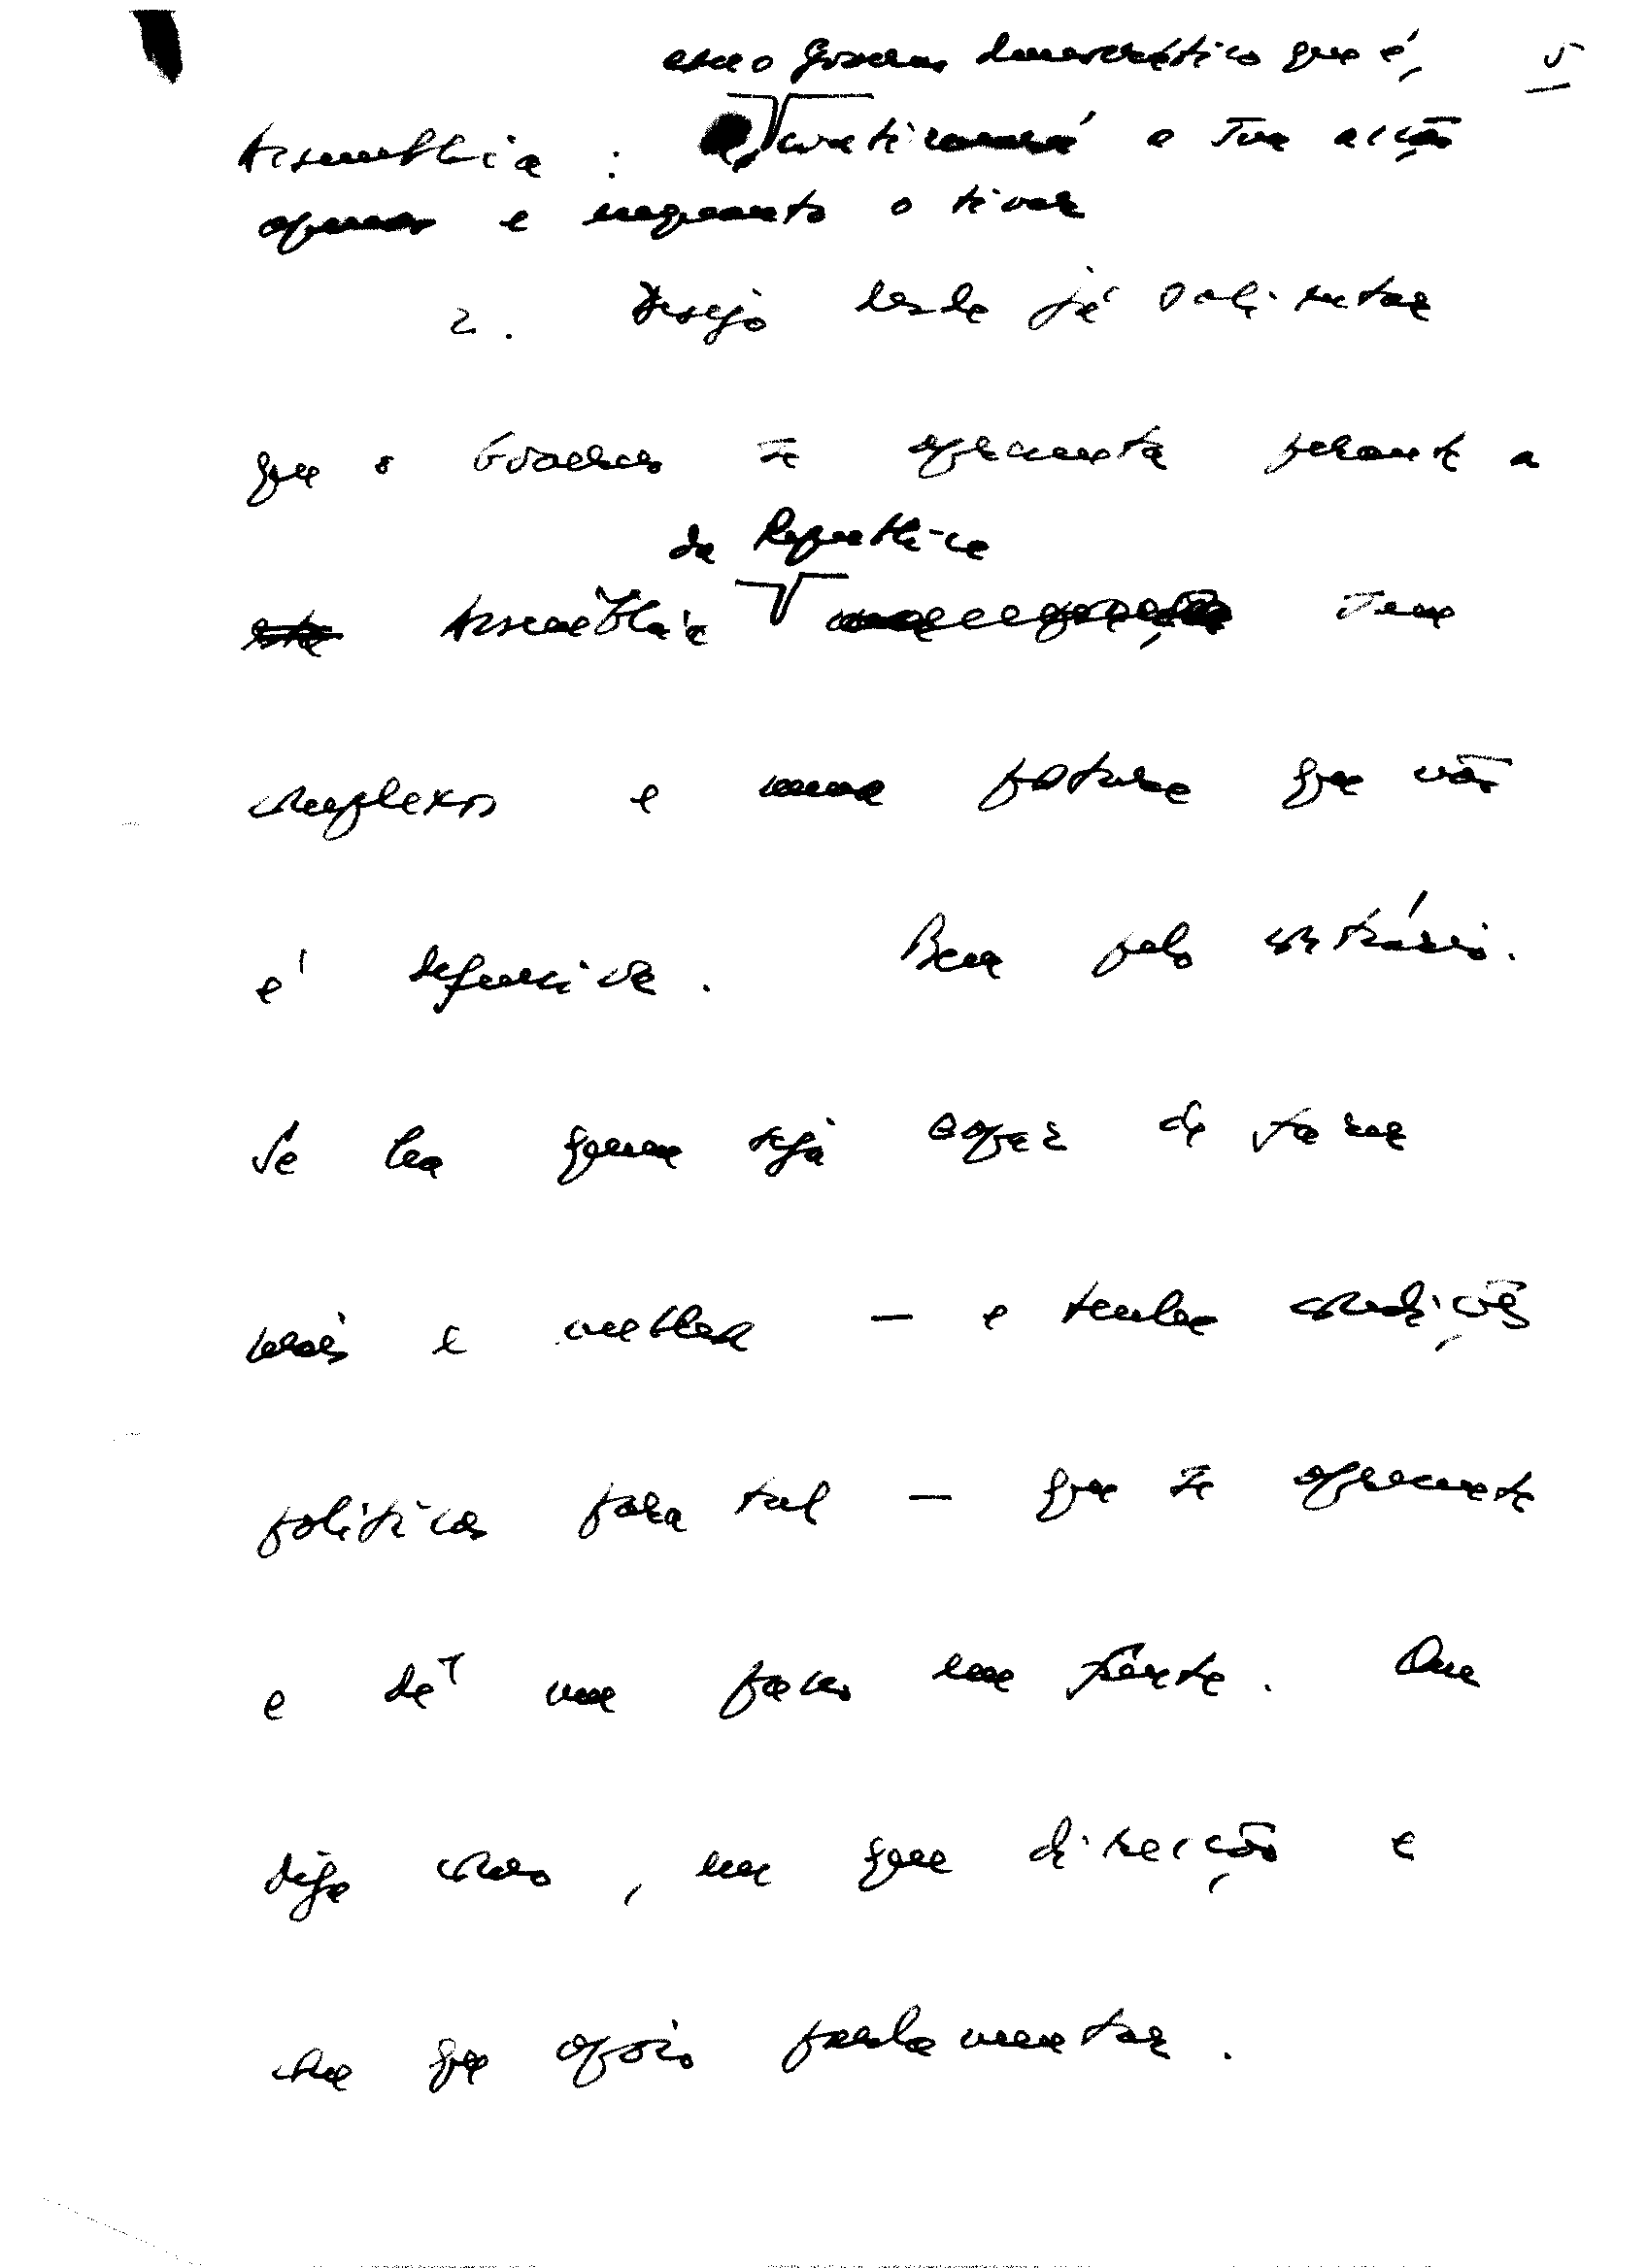 como Governo democrático que é, 5
Assembleia : continuará a sua acção
apenas e enquanto o tiver
2. Desejo desde já salientar
que o Governo se apresenta perante a
da República
esta Assembleia sem
complexos e numa postura que não
é defensiva. Bem pelo contrário.
Se há quem seja capaz de fazer
mais e melhor — e tenha condições
políticas para tal — que se apresente
e dê um passo em frente. Que
diga como, em que direcção e
com que apoio parlamentar.